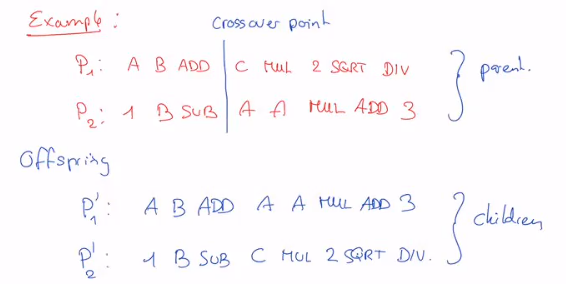 Example:
Crossover point
P₁: A B ADD C MUL 2 SQRT DIV
P₂: 1 B SUB A A MUL ADD 3
parent.
Offspring
P₁': A B ADD A A MUL ADD 3
P₂': 1 B SUB C MUL 2 SQRT DIV.
children